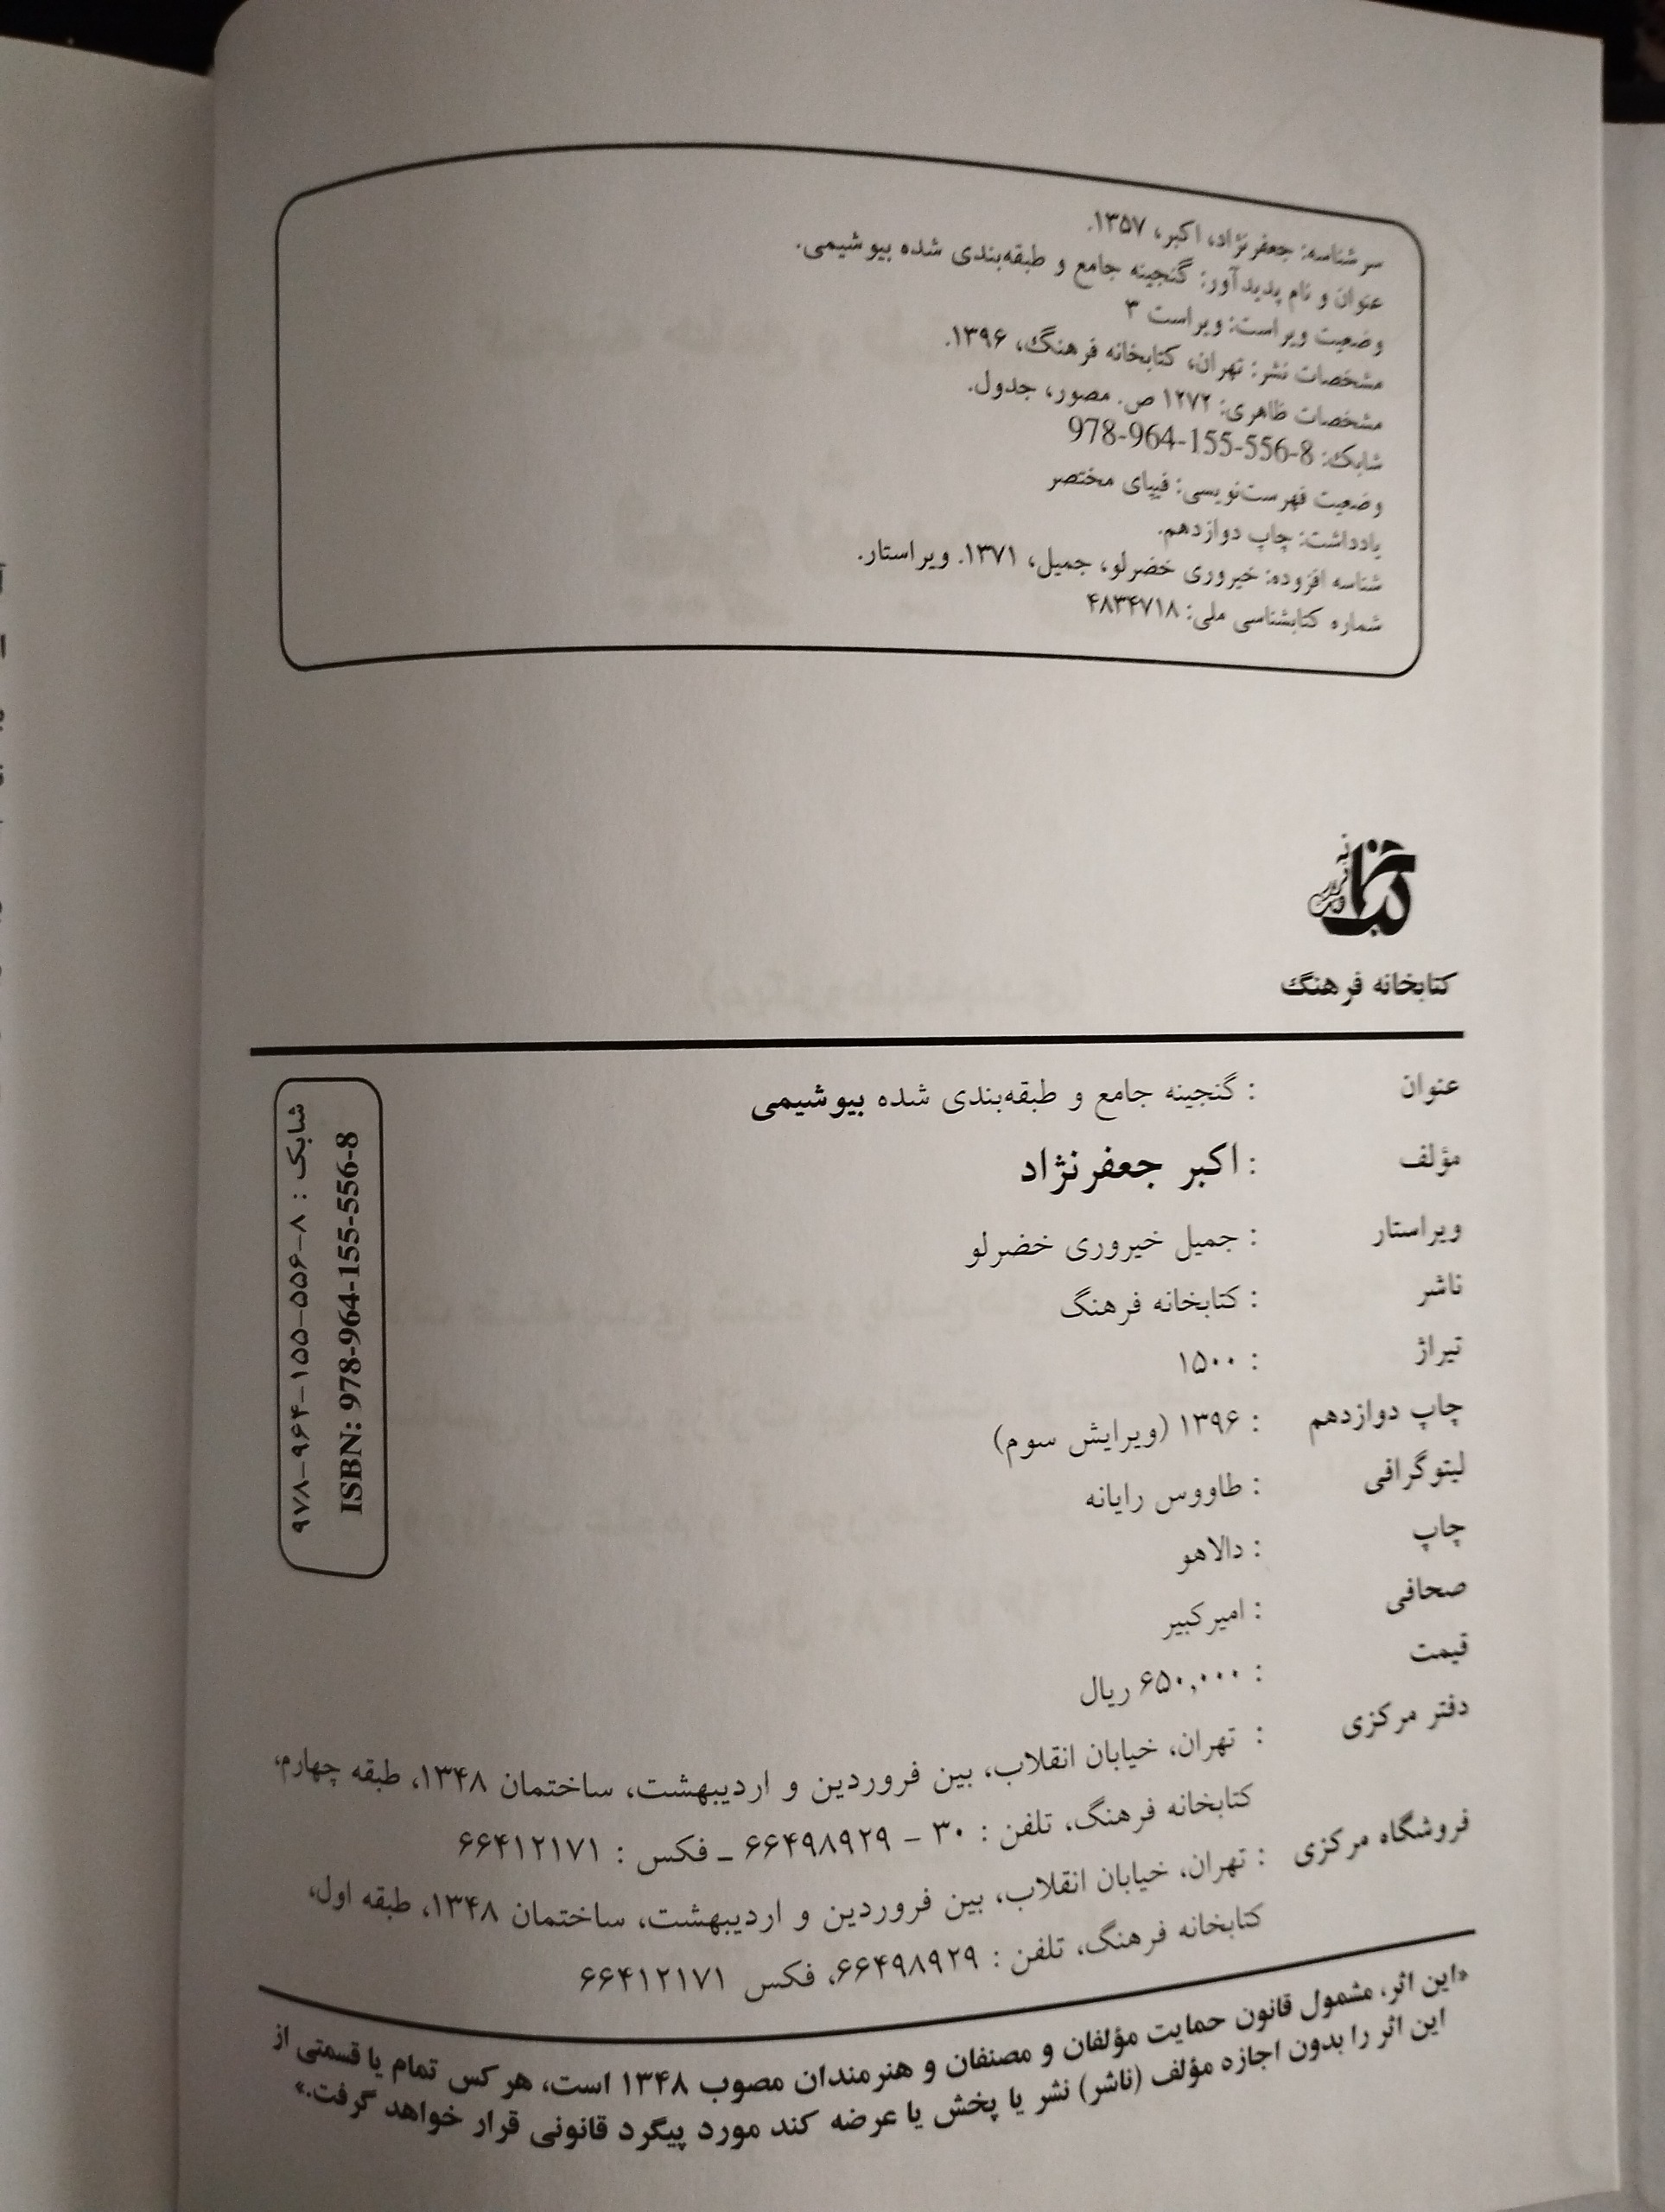 سرشناسه: جعفرنژاد، اکبر، ۱۳۵۷.
عنوان و نام پدیدآور: گنجینه جامع و طبقه‌بندی شده بیوشیمی.
وضعیت ویراست: ویراست ۳
مشخصات نشر: تهران، کتابخانه فرهنگ، ۱۳۹۶.
مشخصات ظاهری: ۱۲۷۲ ص. مصور، جدول.
شابک: 978-964-155-556-8
وضعیت فهرست‌نویسی: فیپای مختصر
یادداشت: چاپ دوازدهم.
شناسه افزوده: خیروری خضرلو، جمیل، ۱۳۷۱. ویراستار.
شماره کتابشناسی ملی: ۴۸۳۴۷۱۸
کتابخانه فرهنگ
عنوان : گنجینه جامع و طبقه‌بندی شده بیوشیمی
مؤلف : اکبر جعفرنژاد
ویراستار : جمیل خیروری خضرلو
ناشر : کتابخانه فرهنگ
تیراژ : ۱۵۰۰
چاپ دوازدهم : ۱۳۹۶ (ویرایش سوم)
لیتوگرافی : طاووس رایانه
چاپ : دالاهو
صحافی : امیرکبیر
قیمت : ۶۵۰,۰۰۰ ریال
دفتر مرکزی : تهران، خیابان انقلاب، بین فروردین و اردیبهشت، ساختمان ۱۳۴۸، طبقه چهارم،
کتابخانه فرهنگ، تلفن : ۳۰ - ۶۶۴۹۸۹۲۹ ـ فکس : ۶۶۴۱۲۱۷۱
فروشگاه مرکزی : تهران، خیابان انقلاب، بین فروردین و اردیبهشت، ساختمان ۱۳۴۸، طبقه اول،
کتابخانه فرهنگ، تلفن : ۶۶۴۹۸۹۲۹، فکس ۶۶۴۱۲۱۷۱
شابک : ۸-۵۵۶-۱۵۵-۹۶۴-۹۷۸
ISBN: 978-964-155-556-8
«این اثر، مشمول قانون حمایت مؤلفان و مصنفان و هنرمندان مصوب ۱۳۴۸ است، هر کس تمام یا قسمتی از
این اثر را بدون اجازه مؤلف (ناشر) نشر یا پخش یا عرضه کند مورد پیگرد قانونی قرار خواهد گرفت.»